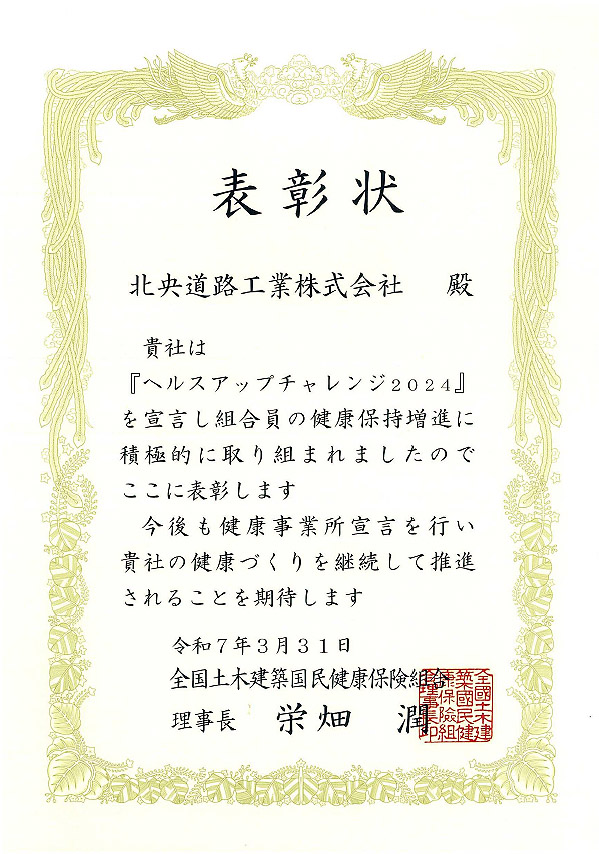 表彰状
北央道路工業株式会社　殿
貴社は
『ヘルスアップチャレンジ2024』
を宣言し組合員の健康保持増進に
積極的に取り組まれましたので
ここに表彰します
今後も健康事業所宣言を行い
貴社の健康づくりを継続して推進
されることを期待します
令和7年3月31日
全国土木建築国民健康保険組合
理事長　栄畑　潤
全國土木建
築國民健
康保險組
合理事長印